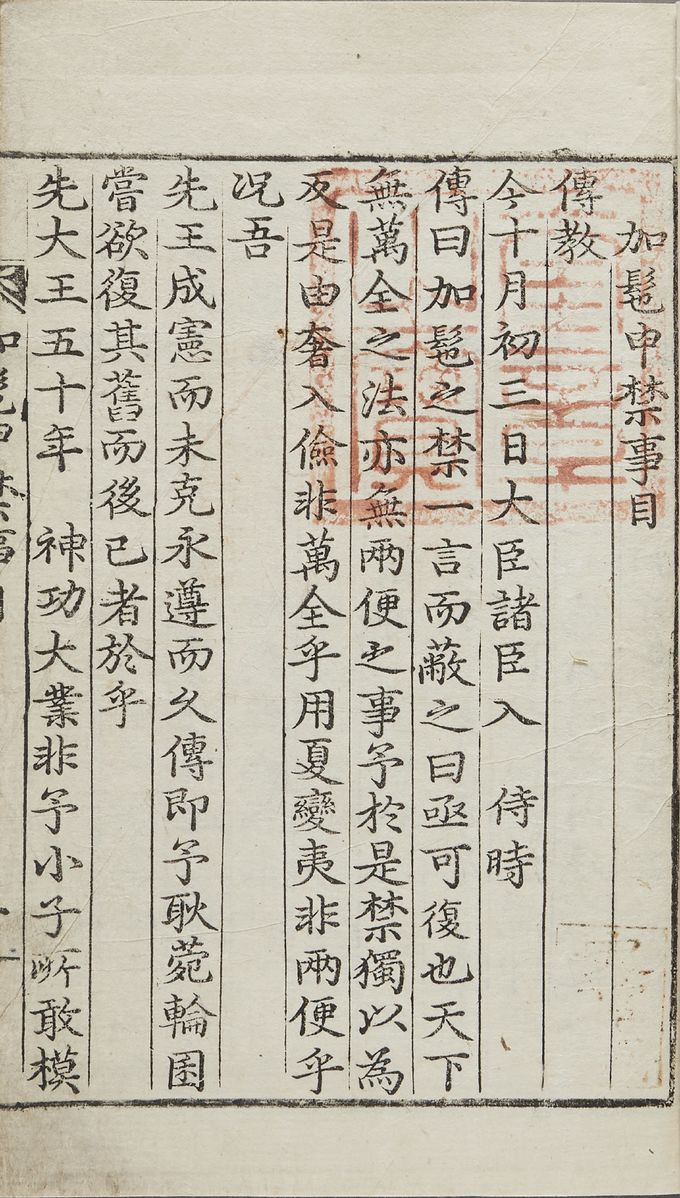 加髢申禁事目
傳教
今十月初三日大臣諸臣入 侍時
傳曰加髢之禁一言而蔽之曰亟可復也天下
無萬全之法亦無兩便之事予於是禁獨以為
反是由奢入儉非萬全乎用夏變夷非兩便乎
况吾
先王成憲而未克永遵而久傳即予耿菀輪囷
嘗欲復其舊而後已者於乎
先大王五十年 神功大業非予小子所敢模
加髢申禁事目